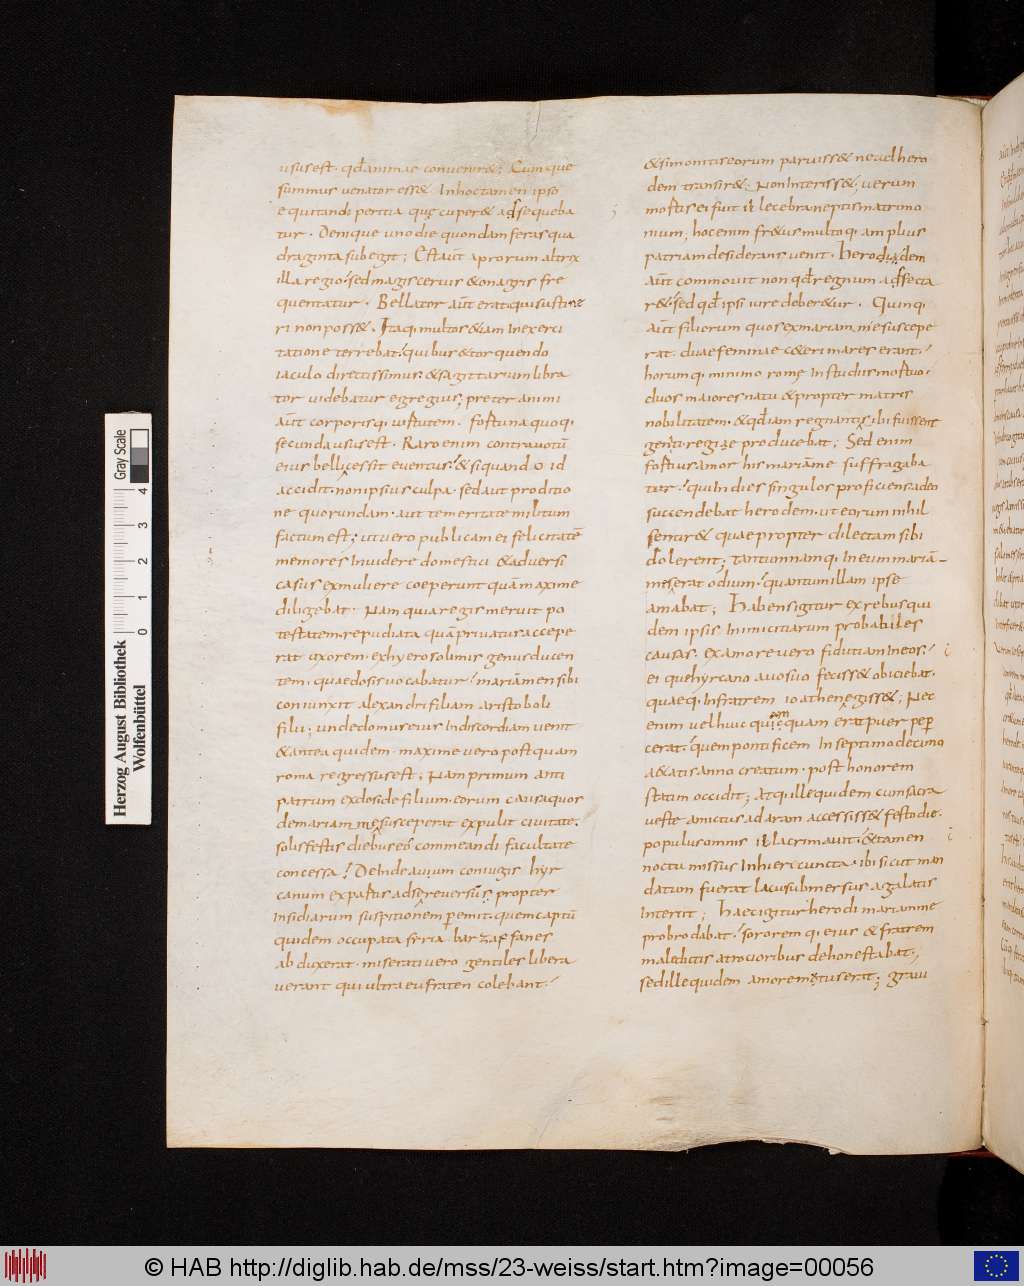 usus est · qđ animae conuenir&; Cumque
summus uenator ess& In hoc tamen ipso
equitandi peritia quę cuper& adsequeba
tur · Denique uno die quondam feras qua
draginta subegit; Est aūt aprorum altrix
illa regio · sed magis ceruis & onagris fre
quentatur · Bellator aūt erat cui sustine
ri non poss& · Itaq; multos &iam in exerci
tatione terrebat · quibus & torquendo
iaculo directissimus · & sagittarum libra
tor uidebatur egregius; preter animi
aūt corporisq; uirtutem · fortuna quoq;
secunda usus est · Raro enim contra uotū
eius belli cessit euentus · & si quando id
accidit · non ipsius culpa · sed aut proditio
ne quorundam · aut temeritate militum
factum est; ut uero publicam ei felicitatē
memores inuidere domestici & aduersi
casus ex muliere coeperunt quā maxime
diligebat · Nam quia regis meruit po
testatem · repudiata quā priuatur accepe
rat uxorem · ex hyerosolimis genus ducen
tem · quae dosis uocabatur · mariāmen sibi
coniunxit alexandri filiam aristoboli
filii; unde domus eius in discordiam uenit
& antea quidem · maxime uero postquam
roma regressus est; Nam primum anti
patrum ex doside filium · eorum causa quos
de mariamme susceperat expulit ciuitate ·
solis festis diebus eo commeandi facultate
concessa · Deinde auium coniugis hyr
canum ex partis ad se reuersus · propter
Insidiarum suspitionem peremit · quem captū
quidem occupata syria barzaffanes
abduxerat · miserati uero gentiles libera
uerant qui ultra eufraten colebant ·
& si monitis eorum paruiss& ne ad hero
dem transir&; Non interiss&; uerum
mortis ei fuit illecebra neptis matrimo
nium; hoc enim fr&us multoq; amplius
patriam desiderans uenit · Herodem
aūt commouit non qđ regnum adfecta
r& · sed qđ ipsi iure deber&ur · Quinq;
aūt filiorum quos ex mariamme suscepe
rat · duae feminae c&eri mares erant ·
horumq; minimo romę in studiis mortuo ·
duos maiores natu & propter matris
nobilitatem · & qđ iam regnante sibi fuissent
geniti regiae producebat; Sed enim
fortius amor his mariāme suffragaba
tur · qui in dies singulos proficiens adeo
succendebat herodem · ut eorum nihil
sentir& quae propter dilectam sibi
dolerent; tantum namq; in eum mariā-
me erat odium · quantum illam ipse
amabat; Habens igitur ex rebus qui
dem ipsis inimicitiarum probabiles
causas · ex amore uero fidutiam in eos ·
ei que hyrcano auo suo feciss& obiciebat ·
quaeq; in fratrem ioathen egiss&; Nec
enim uel huic quamquam erat puer peper
cerat · quem pontificem In septimo decimo
a&atis anno creatum · post honorem
statim occidit; Atq; ille quidem cum sacra
ueste amictus ad aram accessiss& festo die ·
populus omnis illacrimauit · & tamen
noctu missus In hiericuncta · ibi sicut man
datum fuerat lacu submersus a galatis
Interiit; Haec igitur herodi mariamme
probro dabat · sororem q; eius & fratrem
maledictis atrocioribus dehonestabat ·
sed ille quidem amore mętus erat; graui
Herzog August Bibliothek
Wolfenbüttel
0 1 2 3 4
Gray Scale
© HAB http://diglib.hab.de/mss/23-weiss/start.htm?image=00056